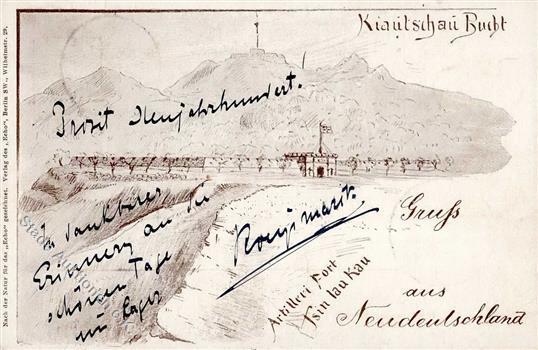 Kiautschau Bucht
Prosit Neujahrhundert.
In dankbarer
Erinnerung an die
schönen Tage
im Lager
Artillerie Fort
Tsin tau Kau
Gruss
aus
Neudeutschland
Nach der Natur für das „Echo“ gezeichnet. Verlag des „Echo“, Berlin SW., Wilhelmstr. 29.